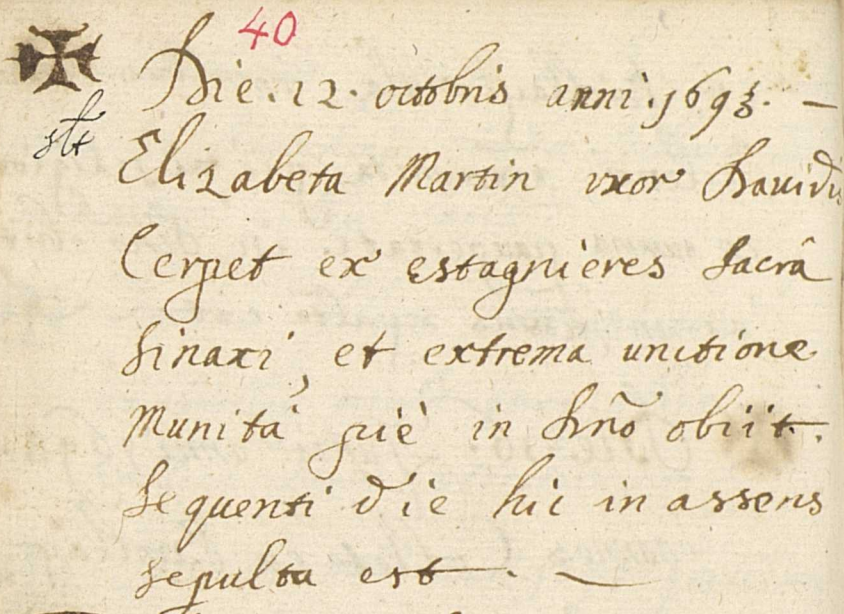 40
Die. 12. octobris anni. 1693. —
Elizabeta Martin uxor Davidis
Cerpet ex estagnieres sacrâ
sinaxi, et extrema unctione
Munita piè in Dno obiit.
sequenti die hic in assens
sepulta est. —